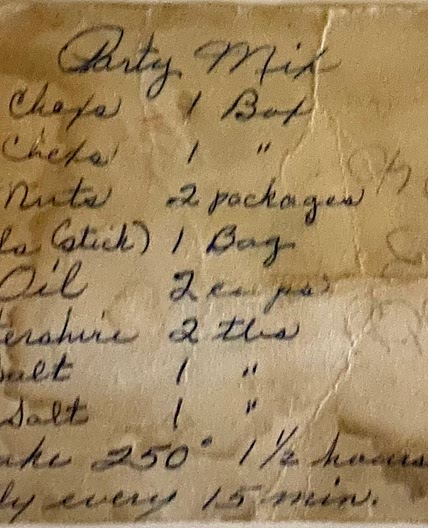 Party Mix
Chexs 1 Box
Chexs 1 "
Nuts 2 packages
ls (stick) 1 Bag
Oil 2 cups
ershire 2 tbs
alt 1 "
Salt 1 "
ake 250° 1½ hours
ly every 15 min.